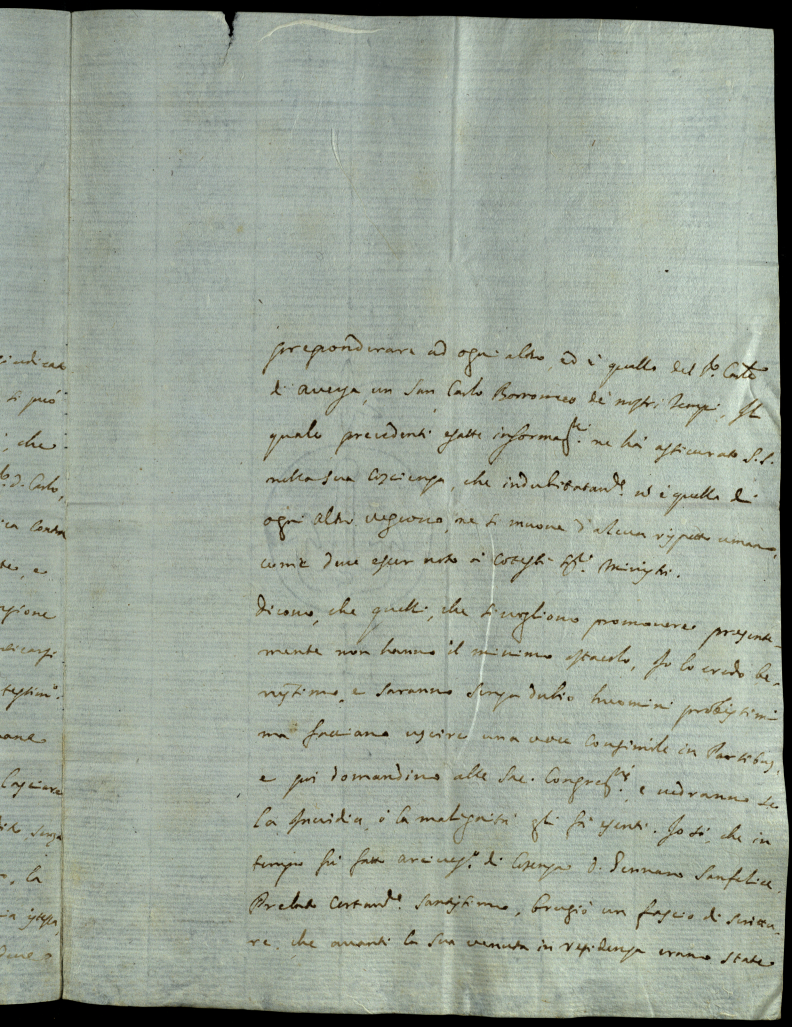 preponderare ad ogni altro, ed è quello del Sr. Carle
di Aversa, un San Carlo Borromeo de' nostri tempi, Il
quale precedenti esatte informazni. ne ha assicurato S.S.
nella sua Coscienza, che indubitatamte. è quella di
ogni altro Vescovo, ne si muove d'alcun rispetto umano,
come deve esser noto a' Cotesti Ssri. Ministri.
dicono, che quelli, che si vogliono promovere presente-
mente non hanno il minimo ostacolo, Io lo credo be-
nissimo, e saranno senza dubio huomini probissimi
ma facciano uscire una voce Consimile in Partibus,
e poi domandino alle Sac. Congregni. e vedranno se
la Invidia, ò la malignità gli fà esenti. Io sò, che in
tempo fù fatto arcivesco. di Cosenza D. Gennaro Sanfelice,
Prelato Certamte. Santissimo, brugiò un fascio di scrittu-
re, che avanti la sua venuta in residenza erano state
giudicate
si può
, che
D. Carlo,
Contra
te, e
testim
Coscienza
senza
, la
istessa,